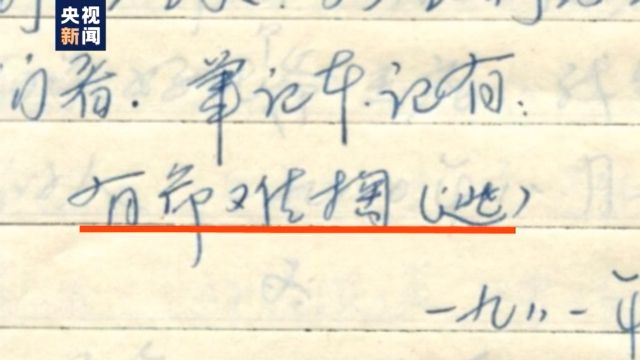 央视
新闻
着.笔记本.记有:
有命难掏(逃)
一九八一年